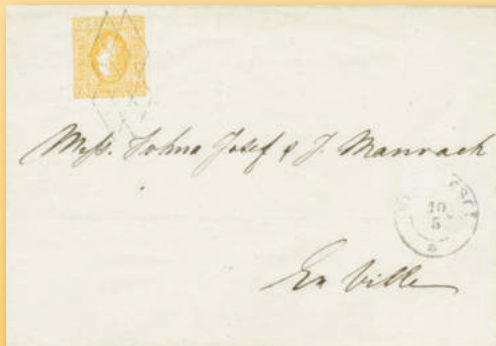 Mess. Sohna Josef & J. Manrach
10
5
En Ville